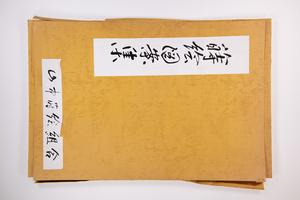 蒔絵図案集
山中蒔絵組合